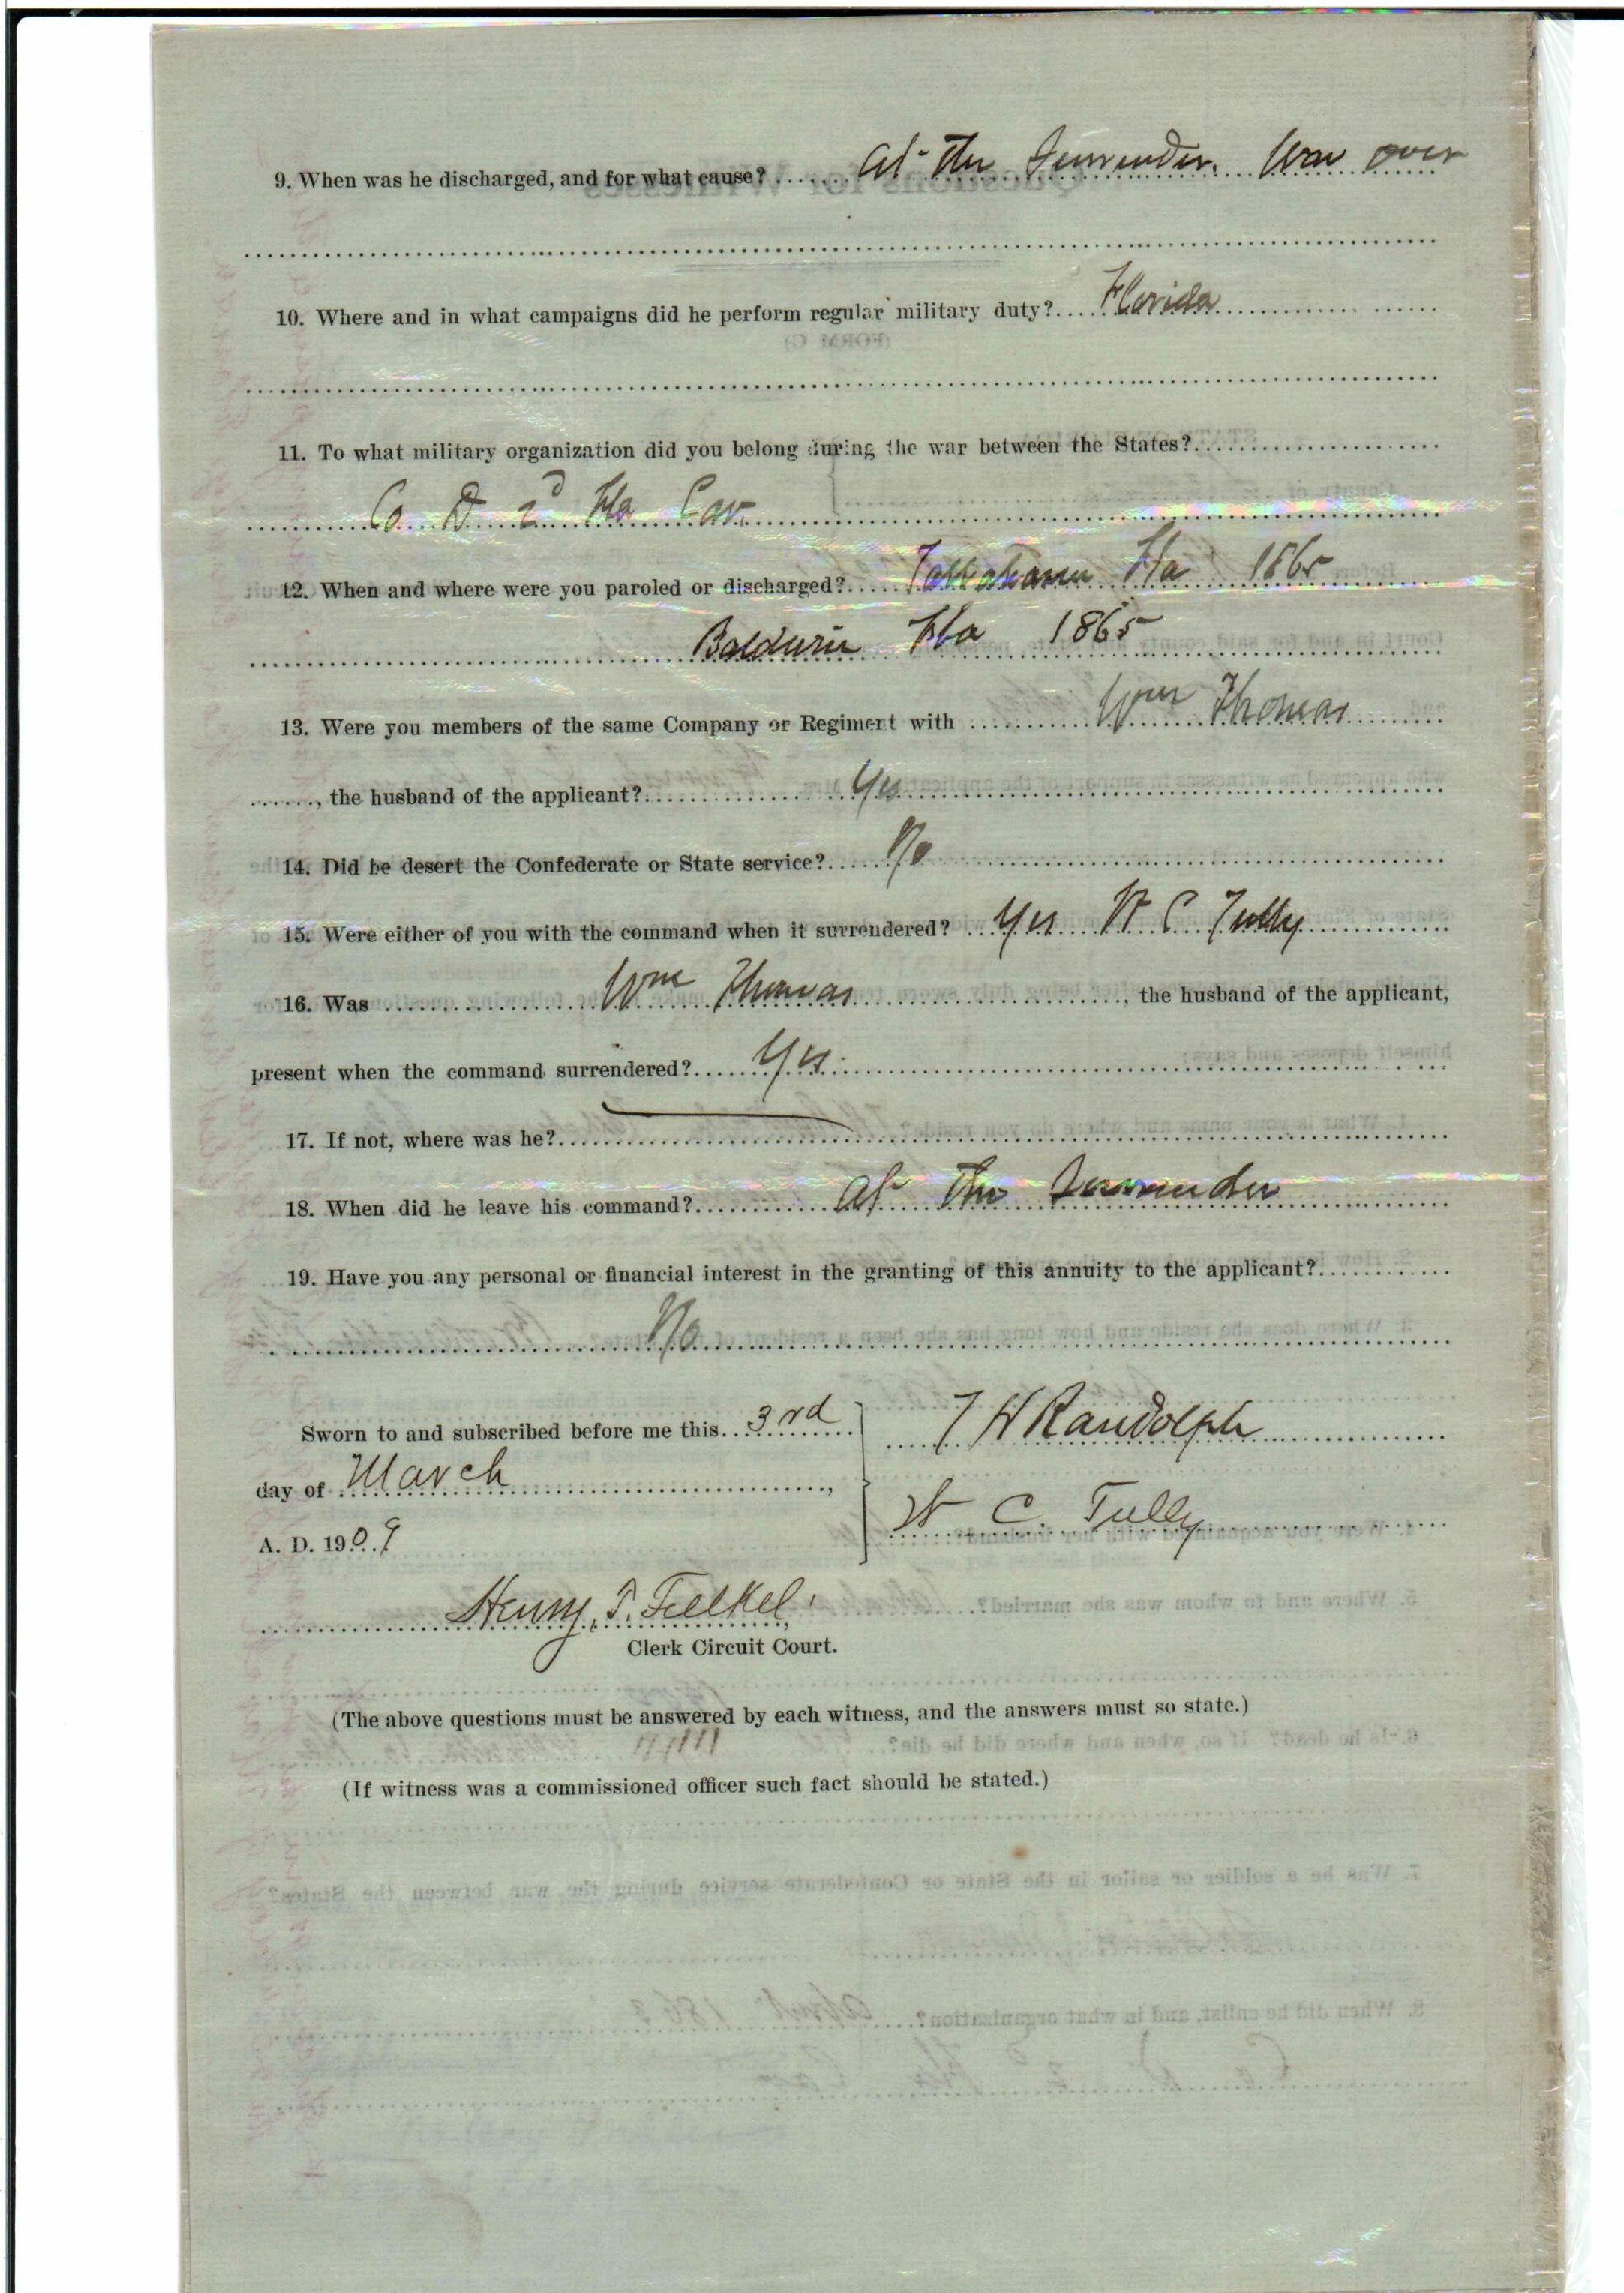 9. When was he discharged, and for what cause? At the Surrender. War over
10. Where and in what campaigns did he perform regular military duty? Florida
11. To what military organization did you belong during the war between the States?
Co D 2d Fla Cav.
12. When and where were you paroled or discharged? Tallahassee Fla 1865
Baldwin Fla 1865
13. Were you members of the same Company or Regiment with Wm Thomas
, the husband of the applicant? Yes
14. Did he desert the Confederate or State service? No
15. Were either of you with the command when it surrendered? Yes W C Tully
16. Was Wm Thomas, the husband of the applicant,
present when the command surrendered? Yes
17. If not, where was he?
18. When did he leave his command? At the Surrender
19. Have you any personal or financial interest in the granting of this annuity to the applicant?
No
Sworn to and subscribed before me this 3rd
day of March,
A. D. 1909
T H Randolph
W C Tully
Henry T. Felkel
Clerk Circuit Court.
(The above questions must be answered by each witness, and the answers must so state.)
(If witness was a commissioned officer such fact should be stated.)